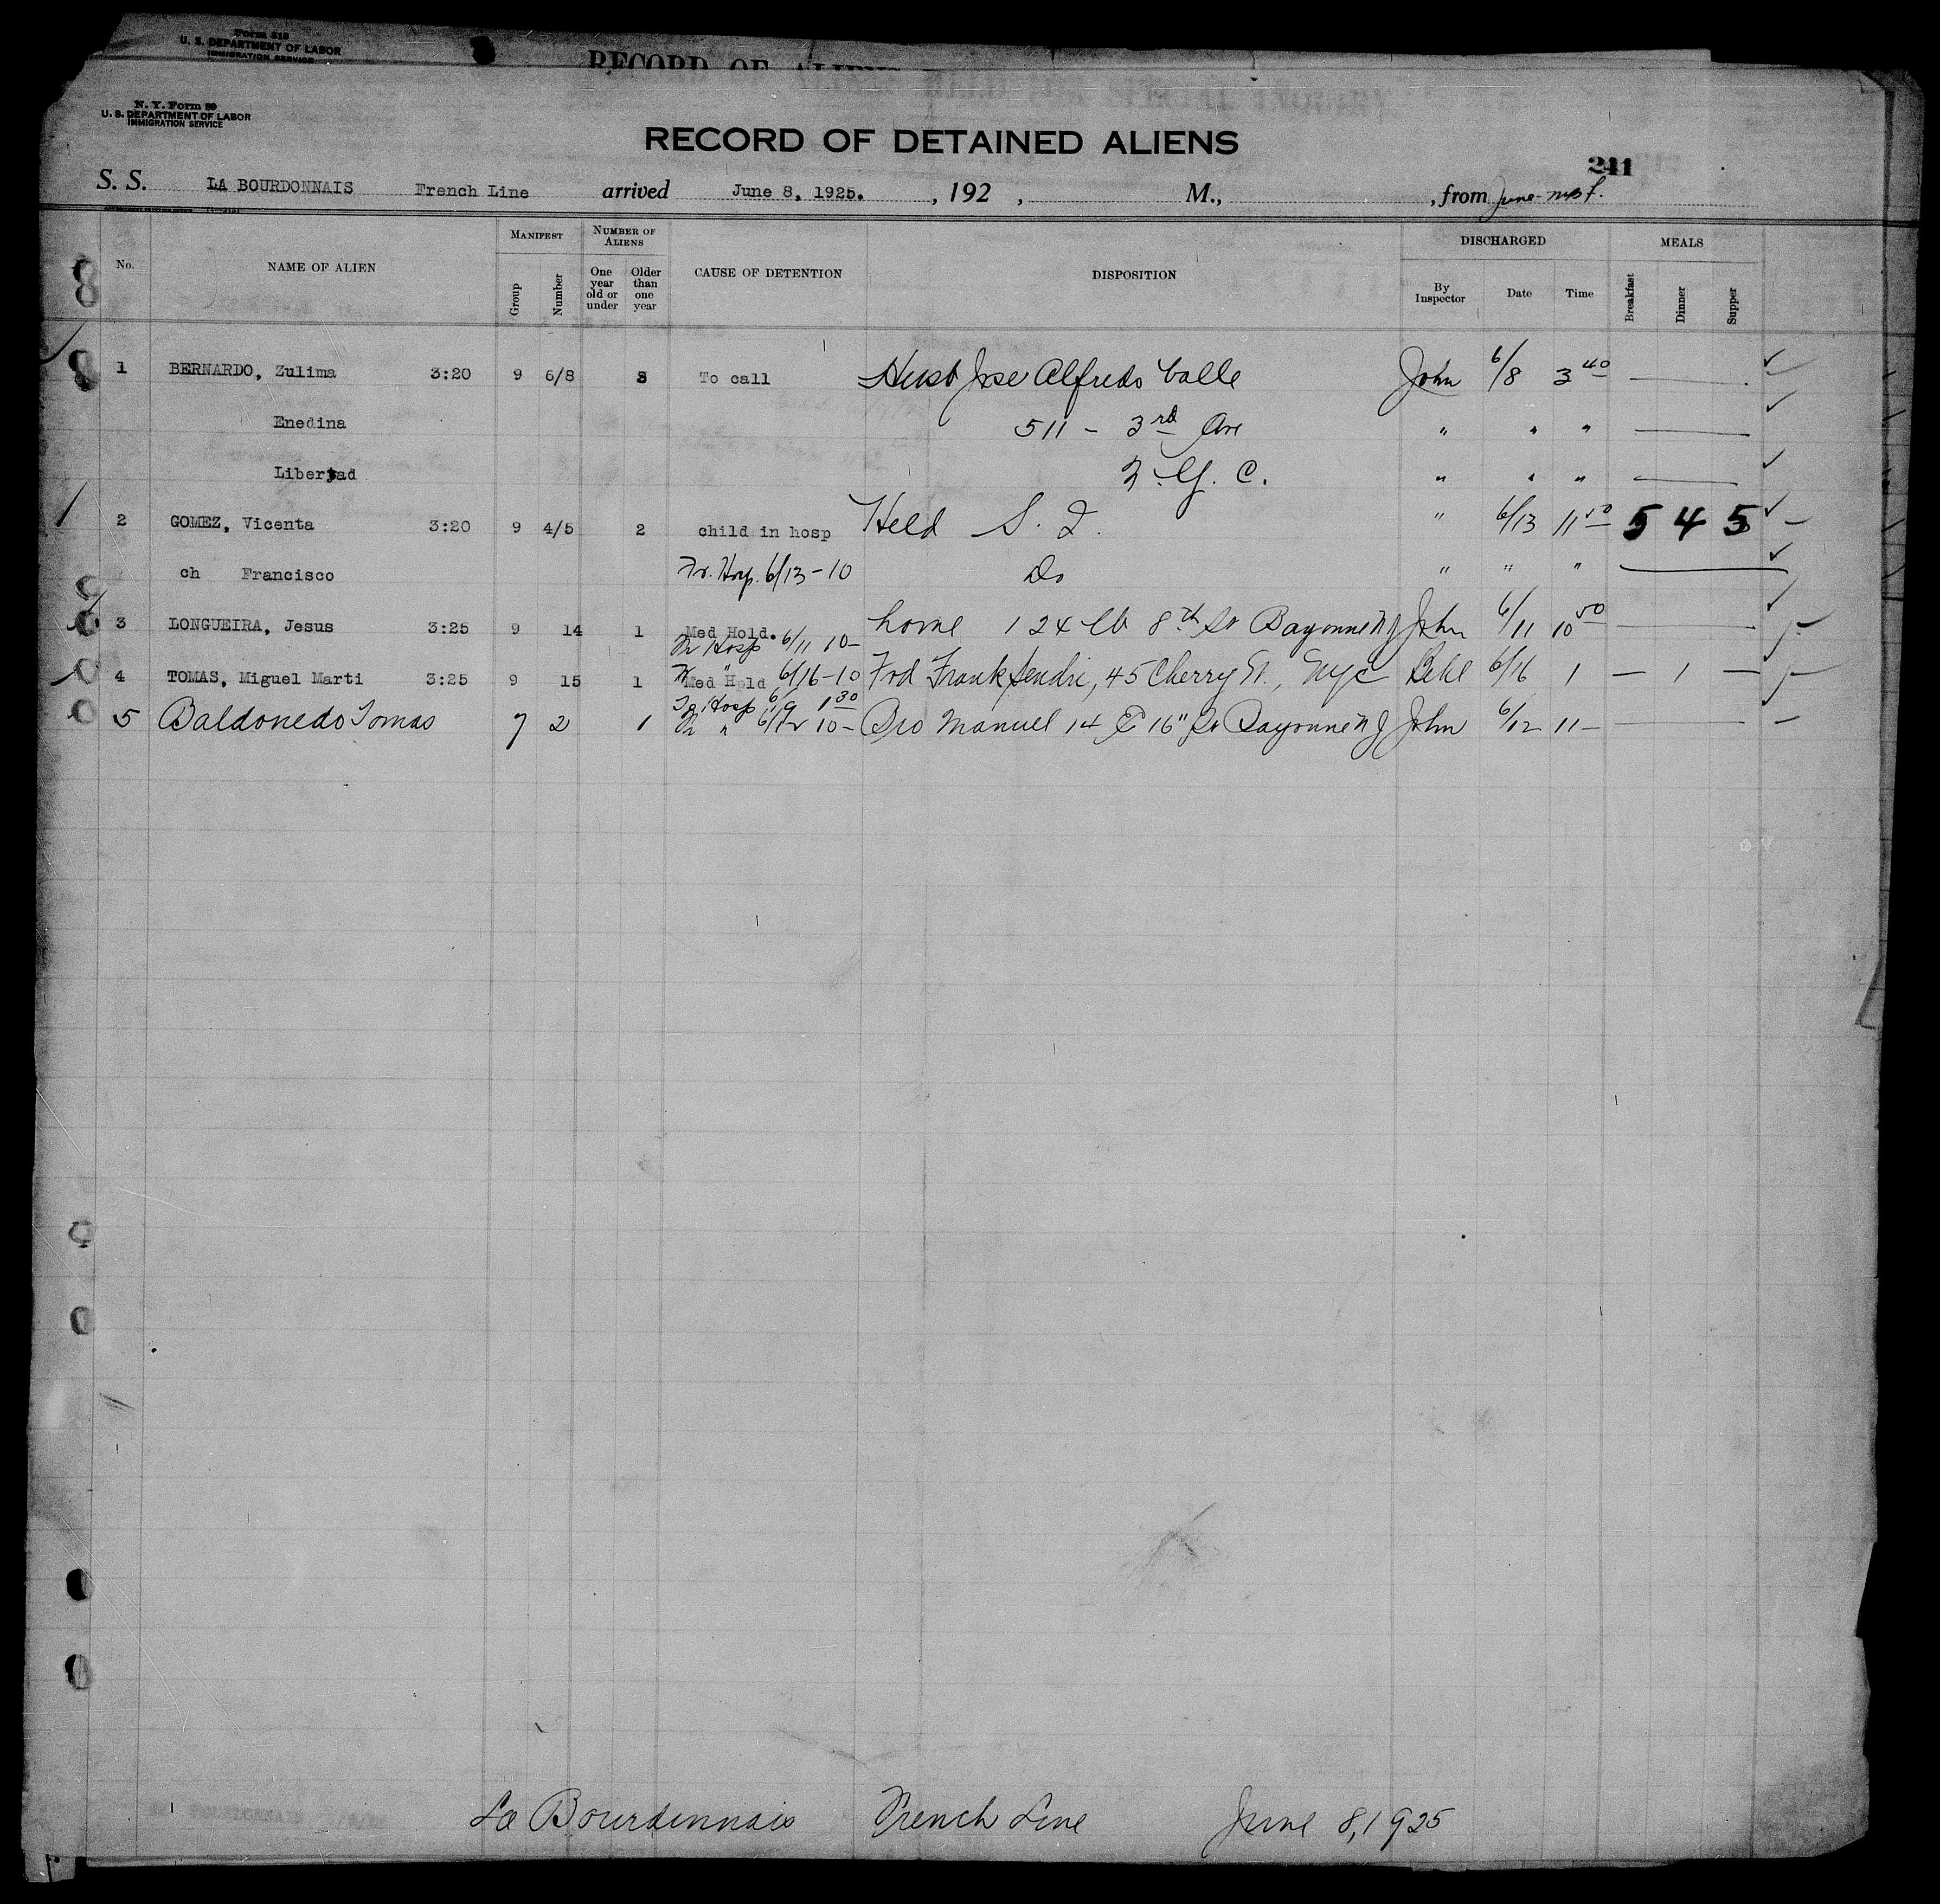 Form 518
U. S. DEPARTMENT OF LABOR
IMMIGRATION SERVICE
RECORD OF ALIENS
N. Y. Form 89
U. S. DEPARTMENT OF LABOR
IMMIGRATION SERVICE
RECORD OF DETAINED ALIENS
241
S. S. LA BOURDONNAIS French Line arrived June 8, 1925. , 192 , M., , from June
No. NAME OF ALIEN MANIFEST Group Number NUMBER OF ALIENS One year old or under Older than one year CAUSE OF DETENTION DISPOSITION DISCHARGED By Inspector Date Time MEALS Breakfast Dinner Supper
1 BERNARDO, Zulima 3:20 9 6/8 3 To call Husb Jose Alfredo Calle John 6/8 3 40
Enedina 511 - 3rd Ave " " "
Libertad N. Y. C. " " "
2 GOMEZ, Vicenta 3:20 9 4/5 2 child in hosp Held S. I. " 6/13 11 50 5 4 5
ch Francisco Fr. Hosp. 6/13-10 Do " " "
3 LONGUEIRA, Jesus 3:25 9 14 1 Med Hold. 8th St Bayonne NJ John 6/11 10 50
Fr Hosp 6/11 10-
4 TOMAS, Miguel Marti 3:25 9 15 1 Med Hold " 6/16-10 Frd Frank Sendri, 45 Cherry St., NYC 6/16 1 — 1 —
5 Baldonedo Tomas 7 2 1 To Hosp 6/9 1 30
Fr " 6/12 10- Bro Manuel 14 E 16" St Bayonne NJ John 6/12 11-
La Bourdonnais French Line June 8, 1925